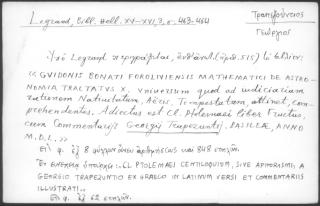 Legrand, Bibl. Hell. XV-XVI, 3, σ. 463-464
Τραπεζούντιος
Γεώργιος
Ὑπὸ Legrand περιγράφεται, (ἀριθ. 515) τὸ ἑξῆς:
« GUIDONIS BONATI FOROLIVIENSIS MATHEMATICI DE ASTRO-
NOMIA TRACTATUS X, Universum quod ad iudiciariam
rationem Nativitatum, Aëris, Tempestatum, attinet, com-
prehendentes. Adiectus est Cl. Ptolemaei liber Fructus,
cum Commentarijs Georgij Trapezuntij. BASILEAE, ANNO
M.D.L. »
Εἰς φ. 8 καὶ 848 στηλῶν.
CL. PTOLEMAEI CENTILOQUIUM, SIVE APHORISMI, A
GEORGIO TRAPEZUNTIO EX GRAECO IN LATINUM VERSI ET COMMENTARIIS
ILLUSTRATI
Εἰς φ. 62 στηλῶν.